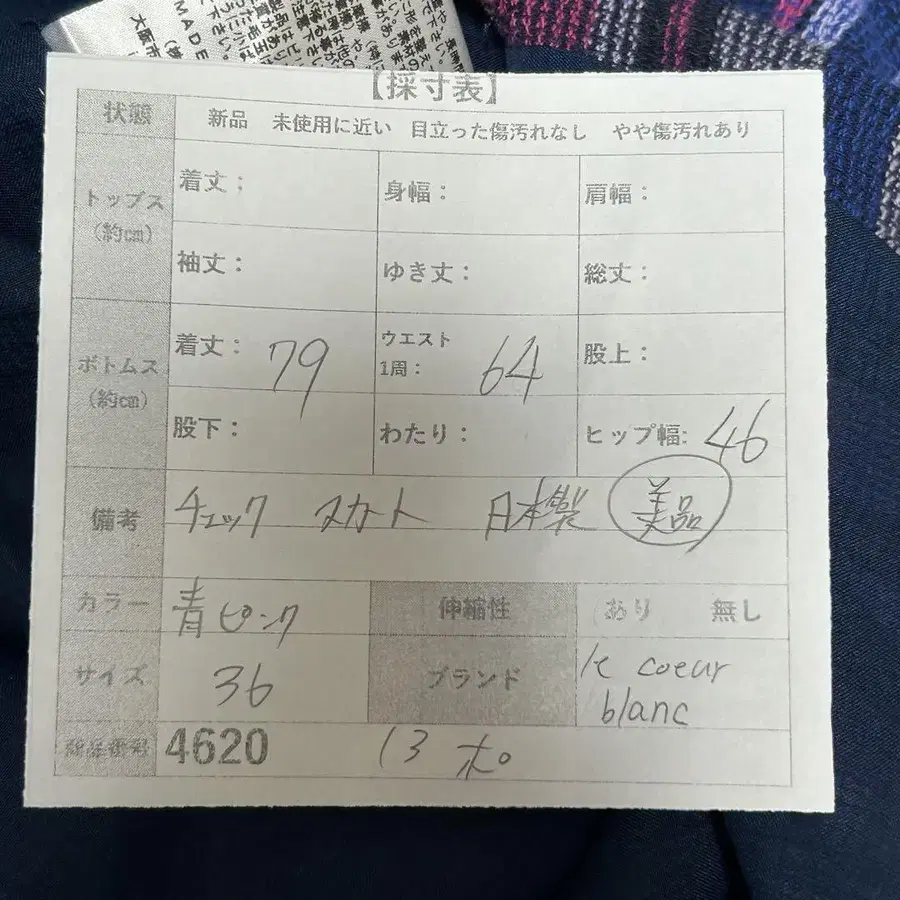 MADE
大阪市
【採寸表】
状態 新品 未使用に近い 目立った傷汚れなし やや傷汚れあり
トップス (約cm) 着丈: 身幅: 肩幅:
袖丈: ゆき丈: 総丈:
ボトムス (約cm) 着丈: 79 ウエスト 1周: 64 股上:
股下: わたり: ヒップ幅: 46
備考 チェック スカート 日本製 美品
カラー 青ピンク 伸縮性 あり 無し
サイズ 36 ブランド le coeur blanc
4620 13 ポ